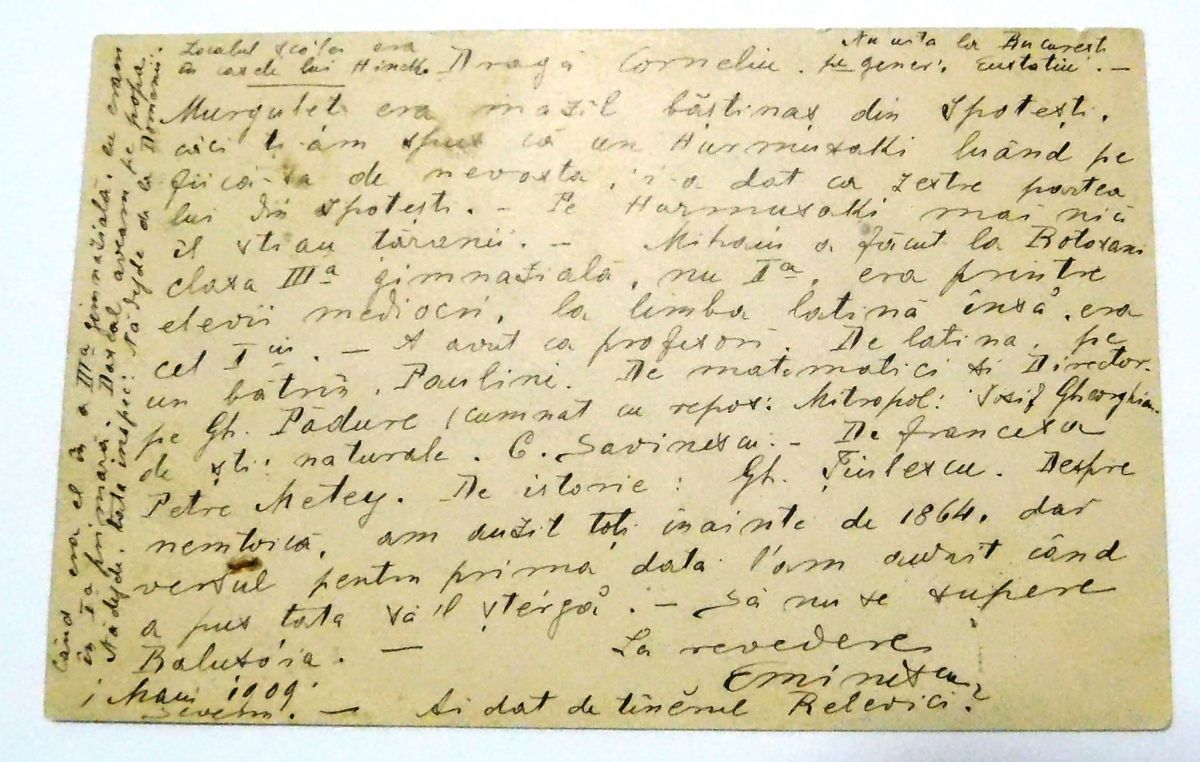 Localul școlei era
în casele lui Hinek.
Nu uita la București
pe gener: Eustatiu. —
Dragă Corneliu.
Murguleț era mazil băștinaș din Ipotești,
căci ți-am spus că un Hurmusaki luând pe
fiică-sa de nevasta, i-a dat ca zestre partea
lui din Ipotești. — Pe Hurmusaki mai nici
îl știau țăranii. — Mihaiu a făcut la Botoșani
clasa IIIª gimnazială, nu Iª, era printre
elevii mediocri, la limba latină însă, era
cel Iiu. — A avut ca profesori. De latina, pe
un bătrîn, Paulini. De matematici și Director.
pe Gh. Pădure (cumnat cu repos: Mitropol: Iosif Gheorghian.
de ști: naturale. C. Savinescu. — De francesa
Petre Metey. De istorie: Gh. Despre
nemțoică, am auzit toți înainte de 1864, dar
versul pentru prima dată l'am auzit când
a pus tata să'l ștergă. — Să nu se supere
Balușóia. — La revedere
Eminescu
1 Maiu 1909.
Severin. — Ai dat de tinĕrul Relevici?
Când era el în a IIIª gimnazială, eu eram
în Iª primară. Dascal aveam pe popa
Nădejde, tata inspec: Nădejde de la